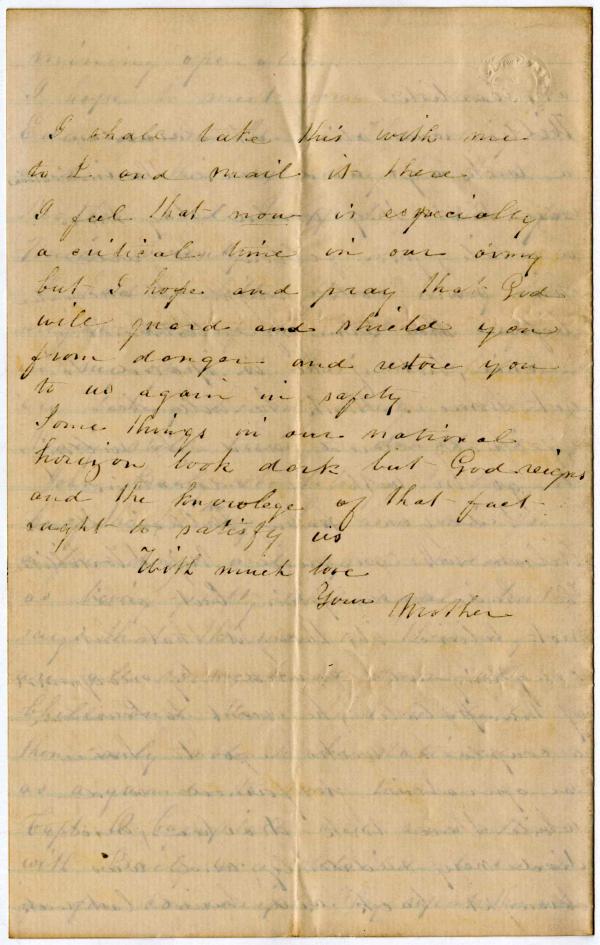 I shall take this with me
to I and mail it there
I feel that now is especially
a critical time in our army
but I hope and pray that God
will guard and shield you
from danger and restore you
to us again in safety
Some things in our national
horizon look dark but God reigns
and the knowlege of that fact
ought to satisfy us
With much love
Your Mother